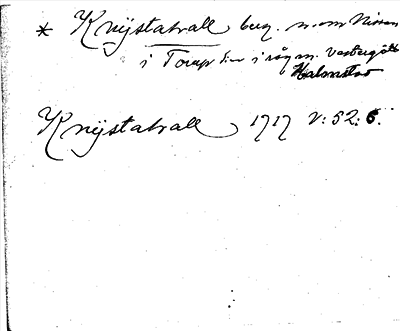 * Knijstahall berg. n. om Nissan
i Torup sn i väg m. Västergötl
Halmstad
Knijstahall 1717 V: 52: 6.